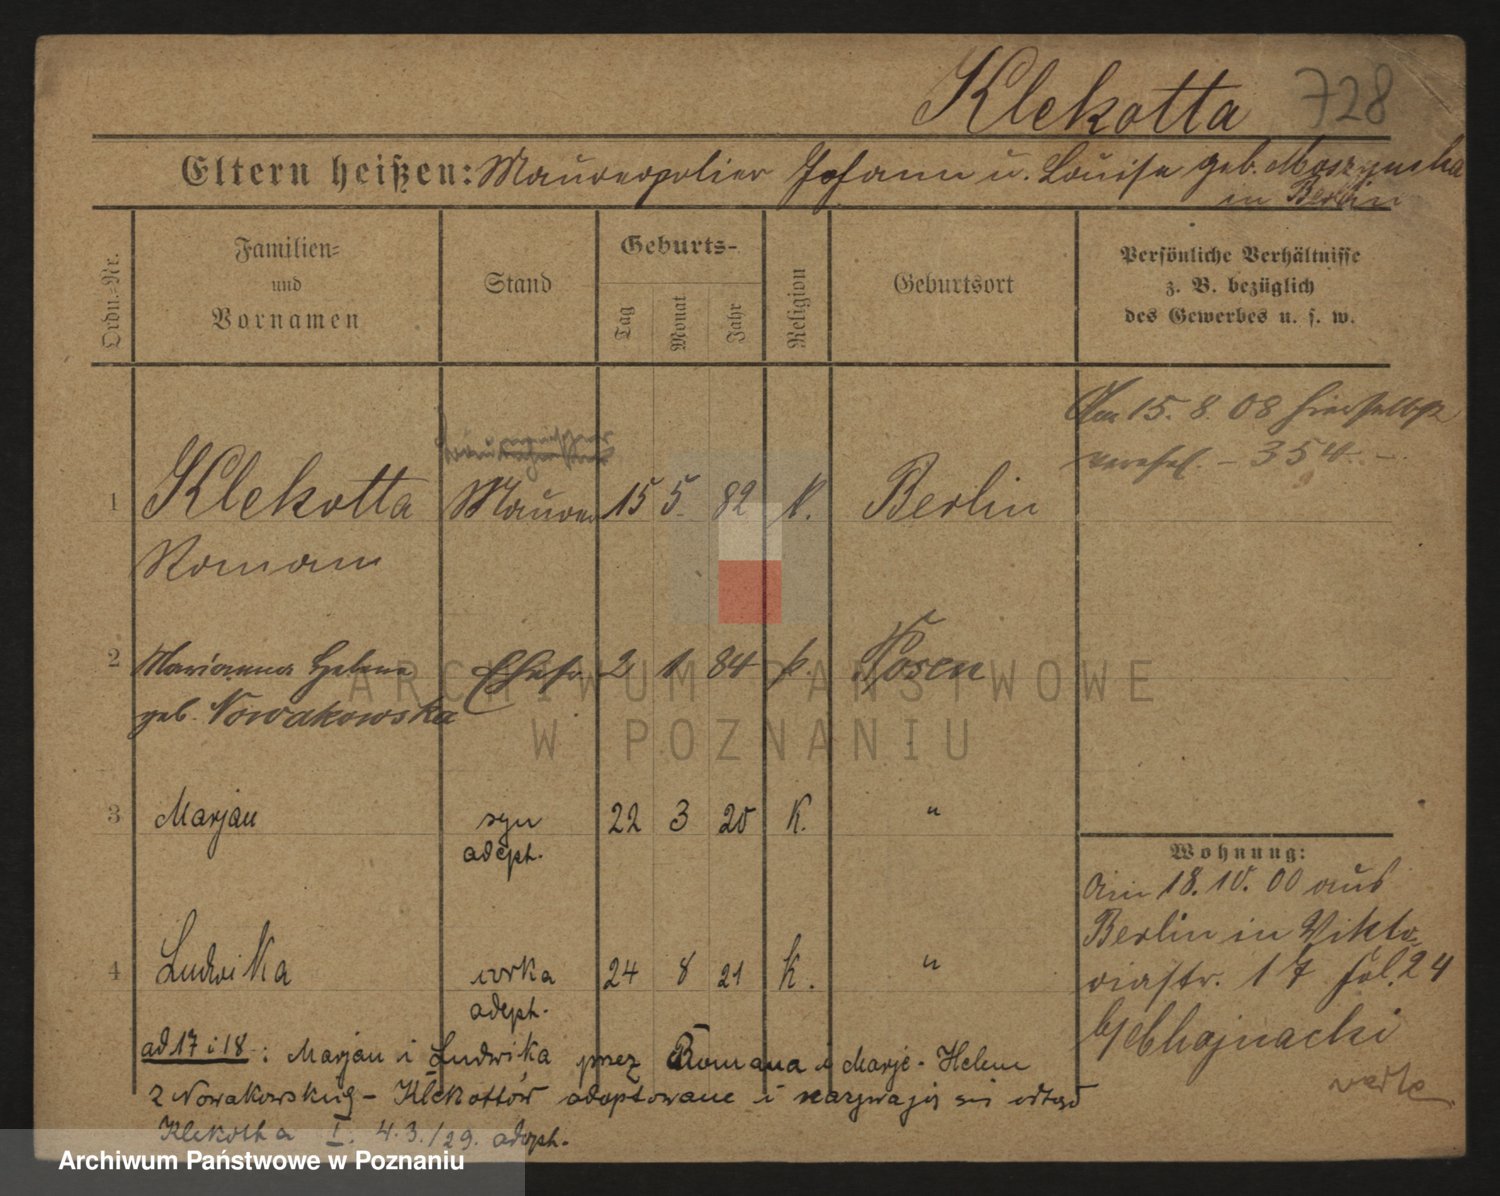 Klekotta 728
Eltern heißen: Maurerpolier Johann u. Louise geb. Moszynska
in Berlin
Ordn.-Nr.
Familien-
und
Vornamen
Stand
Geburts-
Tag
Monat
Jahr
Religion
Geburtsort
Persönliche Verhältnisse
z. B. bezüglich
des Gewerbes u. s. w.
Am 15. 8. 08 hierselbst
verehel. – 354. –
1 Klekotta Maurer 15 5. 82 k. Berlin
Roman
2 Marianna Helene Ehefr. 2 1 84 k. Posen
geb. Nowakowska
3 Marjan syn 22 3 20 K. "
adopt.
4 Ludwika córka 24 8 21 k. "
adopt.
Wohnung:
Am 18. 10. 00 aus
Berlin in Vikto
riastr. 17 fol. 24
b/ Chojnacki
verte
ad 17 i 18: Marjan i Ludwika przez Romana i Marję-Helenę
z Nowakowskich – Klekottów adoptowane i nazywają się odtąd
Klekotta I. 4.3./29. adopt.
ARCHIWUM PAŃSTWOWE
W POZNANIU
Archiwum Państwowe w Poznaniu